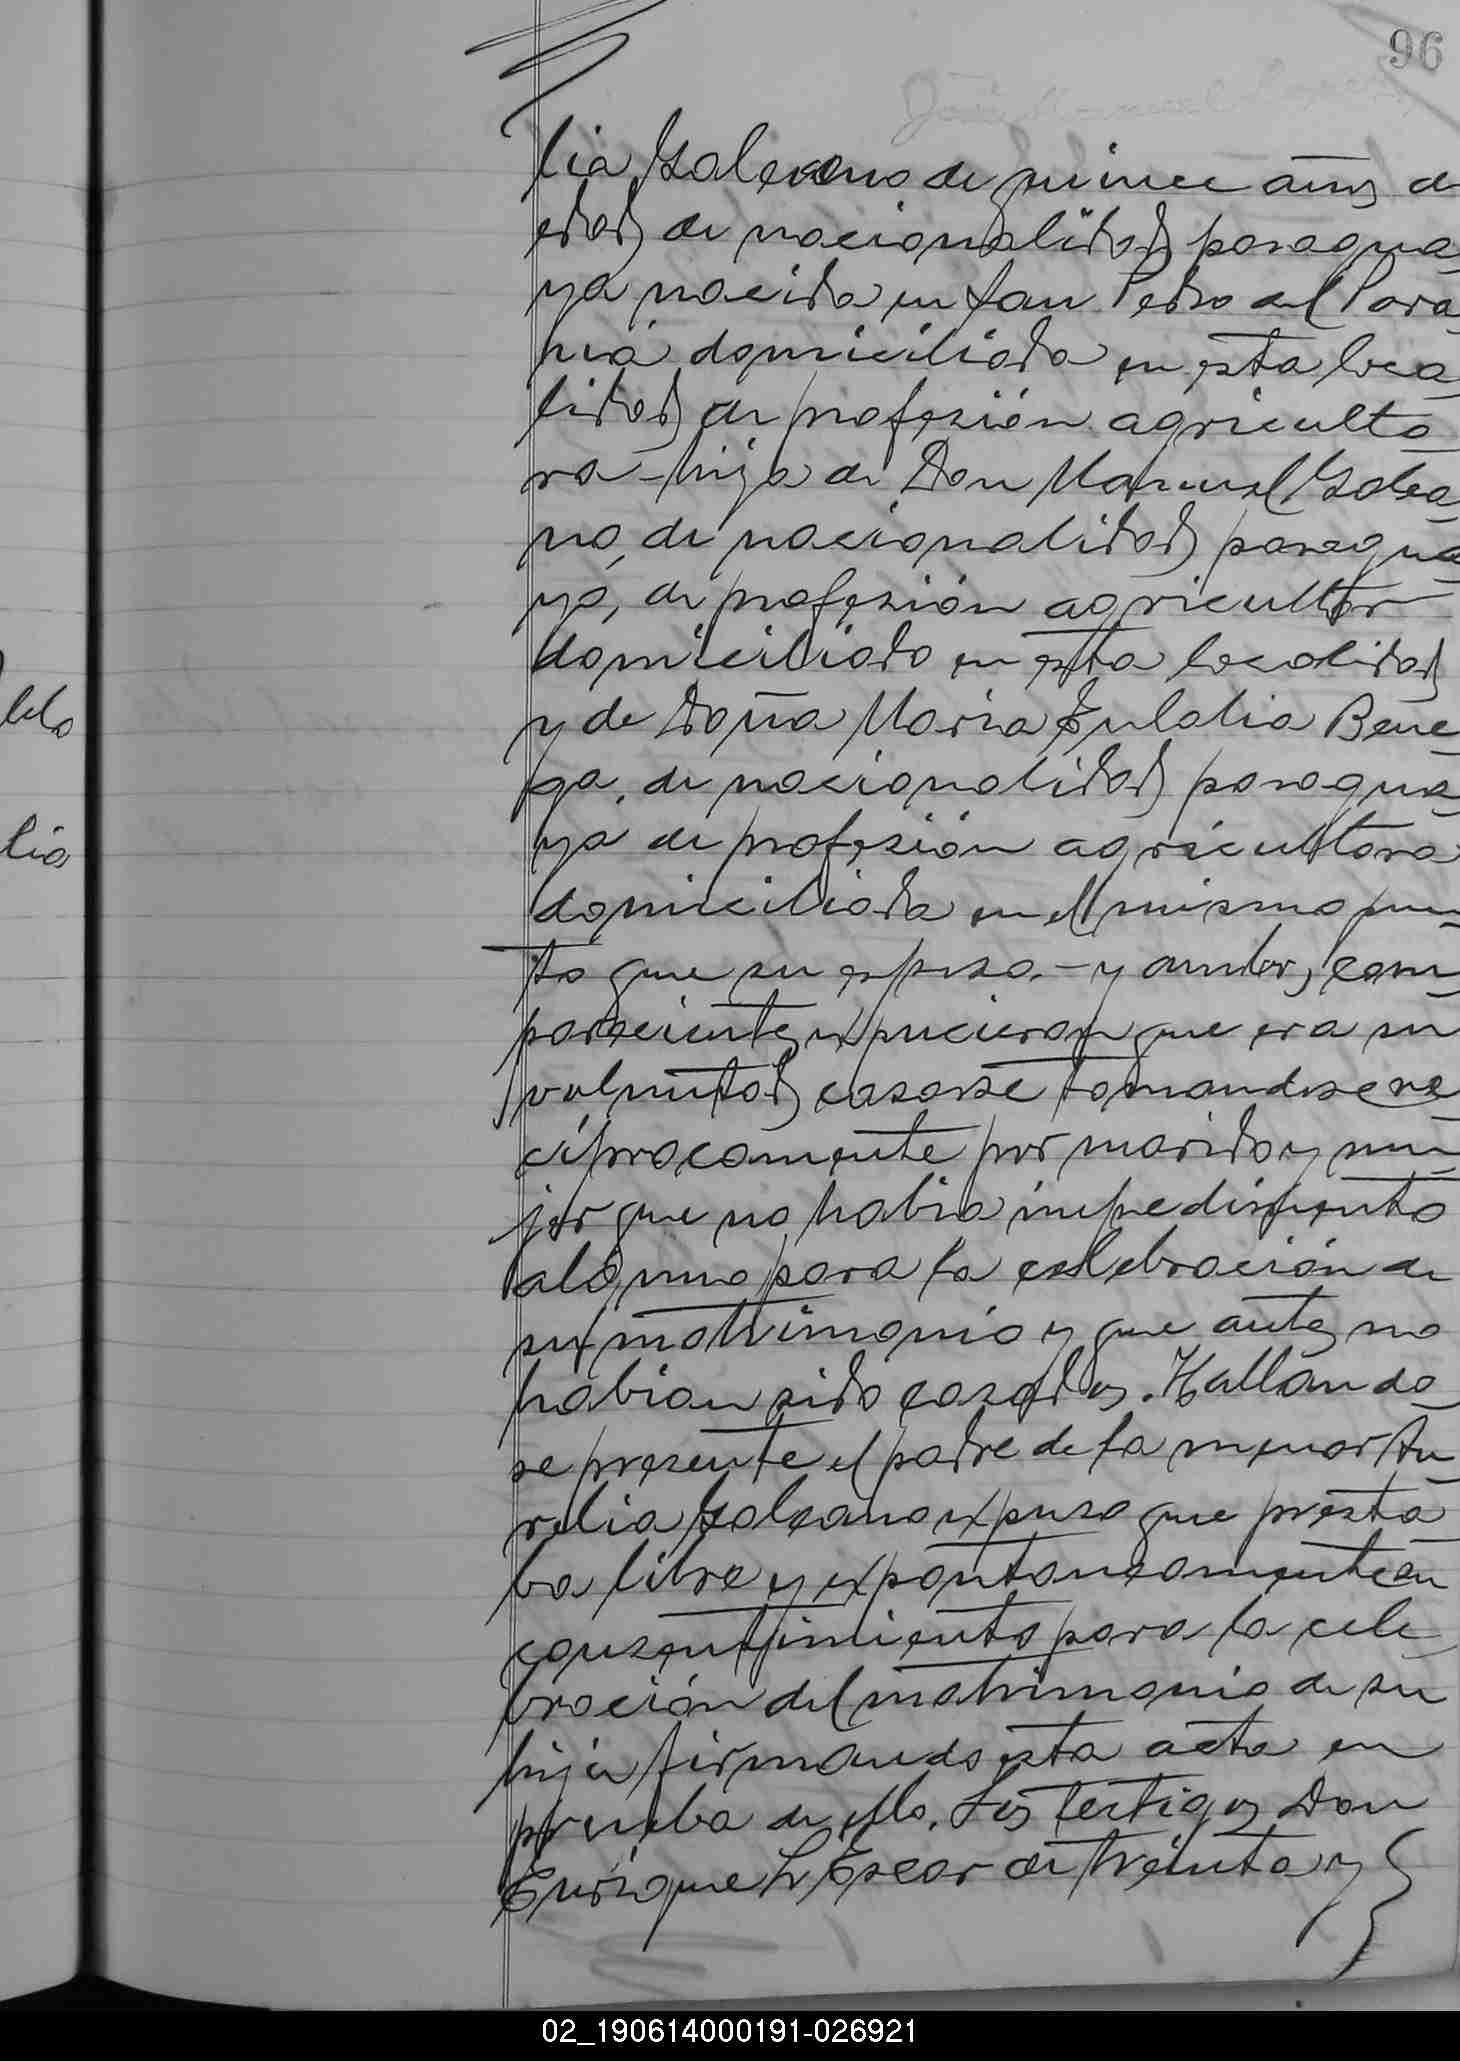 96
lia Galeano de quince años de
edad de nacionalidad paragua
ya nacida en San Pedro del Para
ná domiciliada en esta loca
lidad de profesión agriculto
ra - hija de Don Manuel Galea
no, de nacionalidad paragua
yo, de profesión agricultor
domiciliado en esta localidad
y de Doña Maria Eulalia Bene
ga, de nacionalidad paragua
ya de profesión agricultora
domiciliada en el mismo pun
to que su esposo.- y ambos, com
parecientes expucieron que era su
voluntad casarse tomandose re
ciprocamente por marido y mu
jer que no habia impedimento
alguno para la celebración de
su matrimonio y que antes no
habian sido casados. Hallando
se presente el padre de la menor Au
relia Galeano expuso que presta
ba libre y expontaneamente su
consentimiento para la cele
bración del matrimonio de su
hija firmando esta acta en
prueba de ello. Los testigos Don
Enrique L. Escar de treinta y
lelo
lia
02_190614000191-026921